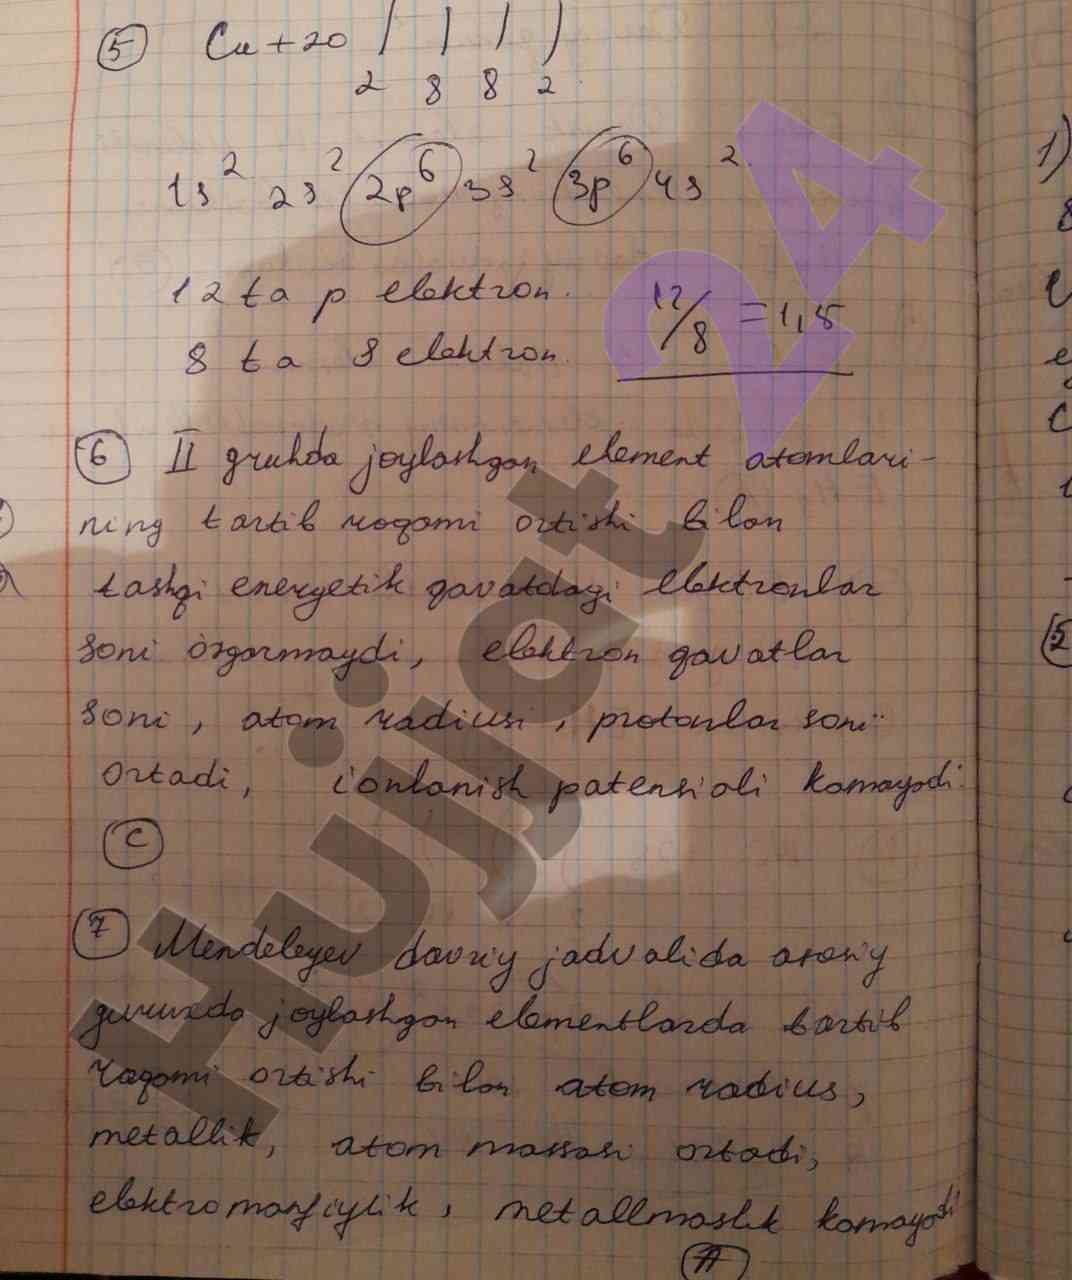 5 Ca +20 ) ) ) )
2 8 8 2
1s² 2s² 2p⁶ 3s² 3p⁶ 4s²
12 ta p elektron.
12/8 = 1,5
8 ta s elektron.
6 II gruhda joylashgan element atomlari-
ning tartib raqami ortishi bilan
tashqi energetik qavatdagi elektronlar
soni o'zgarmaydi, elektron qavatlar
soni, atom radiusi, protonlar soni
ortadi, ionlanish patensiali kamayadi.
C
7 Mendeleyev davriy jadvalida asosiy
guruxda joylashgan elementlarda tartib
raqami ortishi bilan atom radius,
metallik, atom massasi ortadi,
elektromanfiylik, metallmaslik kamayadi
A
Hujjat 24
1)
8
e
5